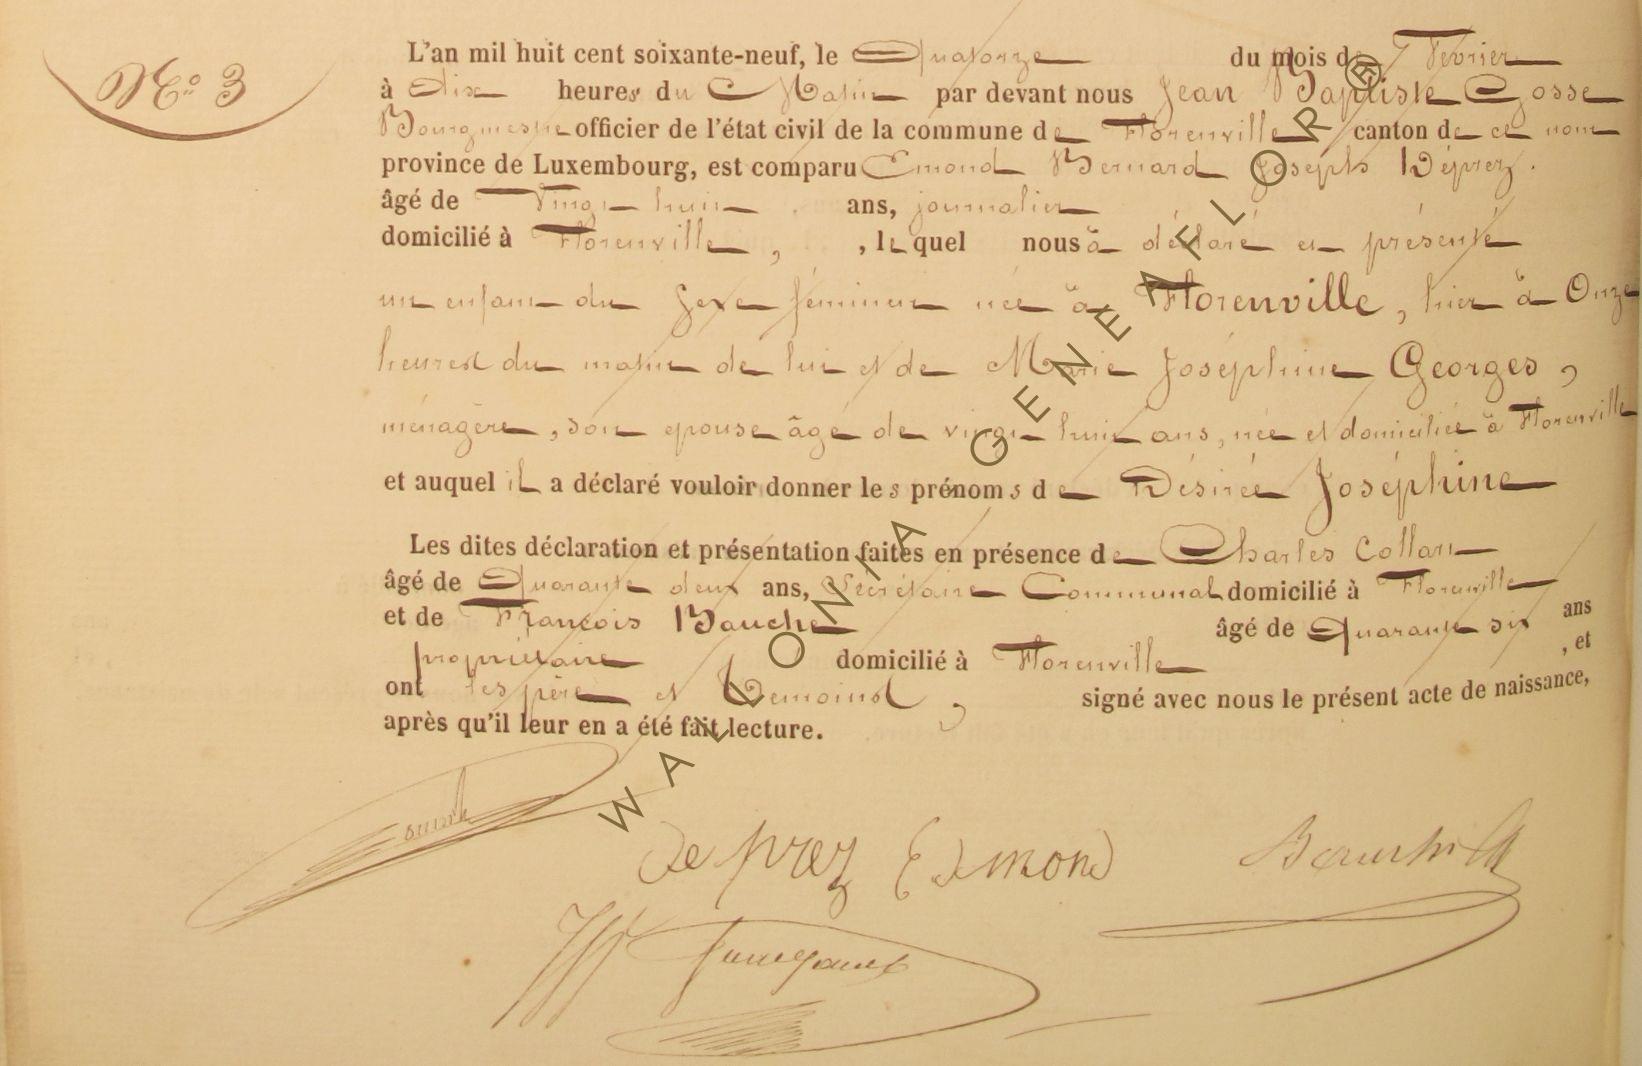 N° 3
L'an mil huit cent soixante-neuf, le Quatorze du mois de Février
à dix heures du Matin par devant nous Jean Baptiste Gosse
Bourgmestre officier de l'état civil de la commune de Florenville canton de ce nom
province de Luxembourg, est comparu Emond Bernard Joseph Déprez.
âgé de Vingt huit ans, journalier
domicilié à Florenville, , lequel nous à déclaré et présenté
un enfant du sexe féminin née à Florenville, hier à Onze
heures du matin de lui et de Marie Joséphine Georges,
ménagère, son épouse âgé de vingt huit ans, née et domiciliée à Florenville
et auquel il a déclaré vouloir donner les prénoms de Désirée Joséphine
Les dites déclaration et présentation faites en présence de Charles Collart
âgé de Quarante deux ans, Sécrétaire Communal domicilié à Florenville
et de François Bauche âgé de Quarante six ans
propriétaire domicilié à Florenville , et
ont les père et témoins, signé avec nous le présent acte de naissance,
après qu'il leur en a été fait lecture.
De prez Edmond
WALLONIA GENEALOPR®